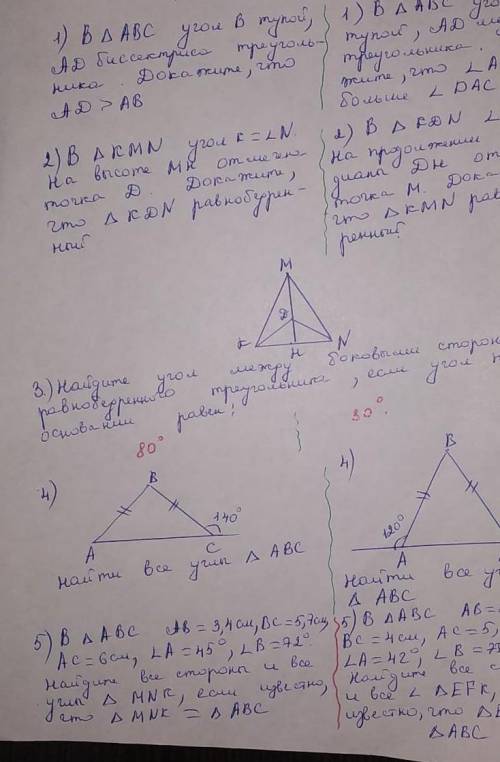 1) В Δ ABC угол B тупой,
AD биссектриса треуголь-
ника. Докажите, что
AD > AB
2) В Δ KMN угол K = ∠N.
На высоте MH отмече-
точка D. Докажите,
что Δ KDN равнобедрен-
ный
1) В Δ ABC
тупой, AD
треугольника.
жите, что ∠
больше ∠ DAC
2) В Δ KDN ∠
На продолжении
дианы DH
точка M.
что Δ KMN
ренный.
M
D
K
H
N
3.) Найдите угол между боковыми
равнобедренного треугольника, если угол
основании равен:
80°
30°.
4)
B
140°
A
C
Найти все углы Δ ABC
4)
B
120°
A
Найти все
Δ ABC
5) В Δ ABC AB = 3,4см, BC = 5,7см,
AC = 6см, ∠A = 45°, ∠B = 72°.
Найдите все стороны и все
углы Δ MNK, если известно,
что Δ MNK = Δ ABC
5) В Δ ABC AB =
BC = 4см, AC = 5,
∠A = 42°, ∠B =
Найдите все
и все ∠ Δ EFK,
известно, что Δ
Δ ABC